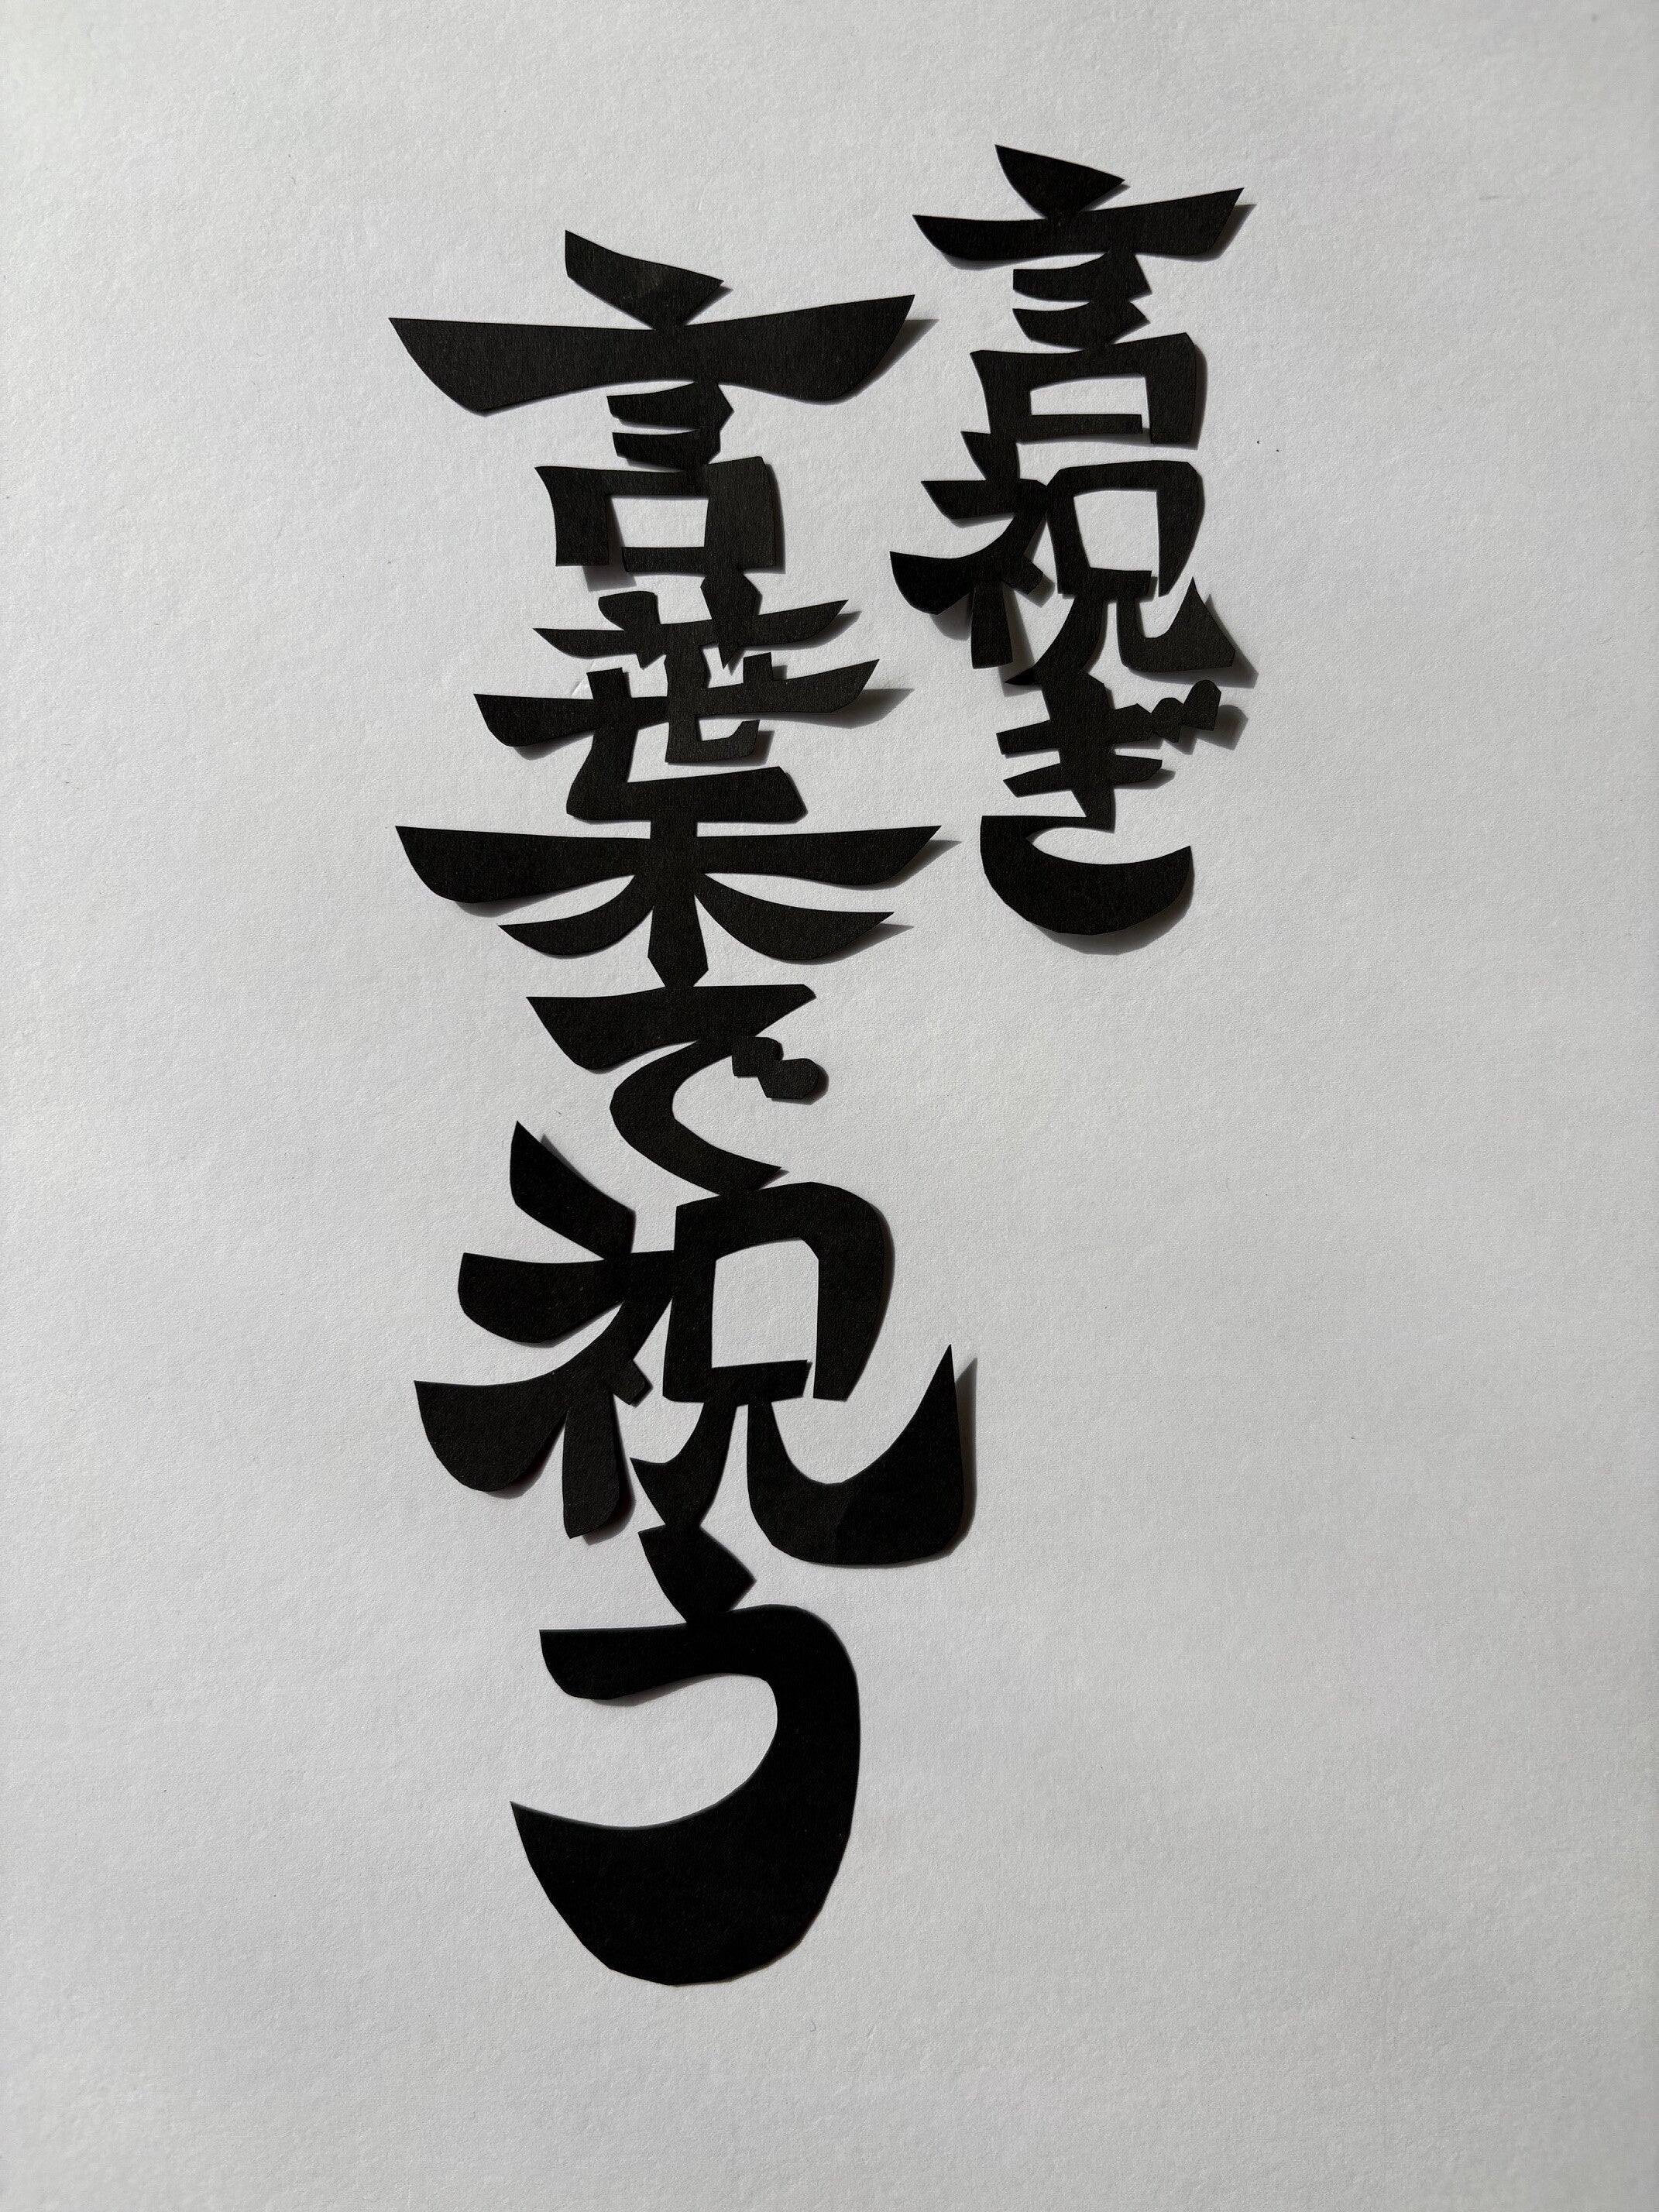 言祝ぎ
言葉で祝う